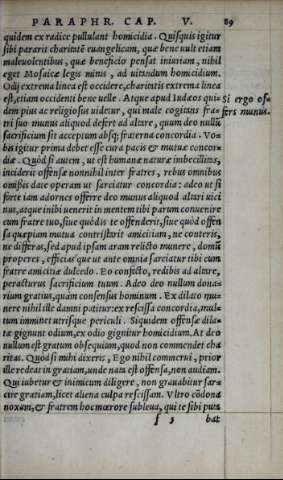 PARAPHR. CAP. V. 89
quidem ex radice pullulant homicidia. Quisquis igitur
sibi pararit charitatē euangelicam, quæ bene uult etiam
maleuolentibus, quæ beneficio pensat iniuriam, nihil
eget Mosaicæ legis minis, ad uitandum homicidium.
Odij extrema linea est occidere, charitatis extrema linea
est, etiam occidenti bene uelle. Atque apud Iudæos qui-
dem pius ac religiosus uidetur, qui male cogitans fra-
tri suo munus aliquod defert ad altare, quum deo nullū
sacrificium sit acceptum absq; fraterna concordia. Vo-
bis igitur prima debet esse cura pacis & mutuæ concor-
diæ. Quòd si autem, ut est humanæ naturæ imbecillitas,
inciderit offensæ nonnihil inter fratres, rebus omnibus
omissis date operam ut sarciatur concordia: adeo ut si
forte iam adornes offerre deo munus aliquod altari uici
nus, atque inibi uenerit in mentem tibi parum conuenire
cum fratre tuo, siue quòd is te offenderit, siue quòd offen
sa quæpiam mutua contristarit amicitiam, ne conteris,
ne differas, sed apud ipsam aram relicto munere, domū
properes, efficiasque ut ante omnia sarciatur tibi cum
fratre amicitiæ dulcedo. Eo confecto, redibis ad altare,
peracturus sacrificium tuum. Adeo deo nullum dona-
rium gratius, quàm consensus hominum. Ex dilato mu-
nere nihil ille damni patitur: ex rescissa concordia, mul-
tum imminet utrisque periculi. Siquidem offensæ dila-
tæ gignunt odium, ex odio gignitur homicidium. At deo
nullum est gratum obsequium, quod non commendet cha
ritas. Quòd si mihi dixeris, Ego nihil commerui, prior
ille redeat in gratiam, unde nata est offensa, non audiam.
Qui iubetur & inimicum diligere, non grauabitur sar-
cire gratiam, licet aliena culpa rescissam. Vltro cōdona
noxam, & fratrem hoc mœrore subleua, qui te sibi puta
f 5 bat
Si ergo of-
fers munus.